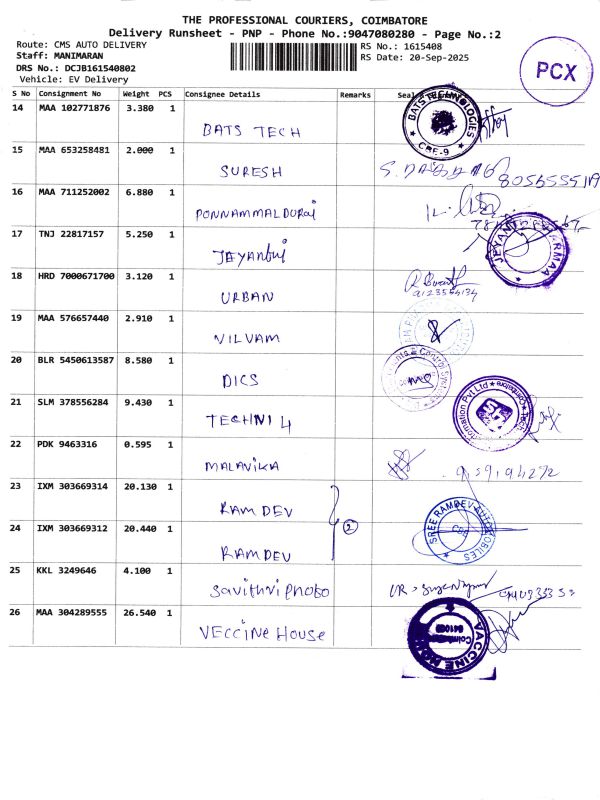 THE PROFESSIONAL COURIERS, COIMBATORE
Delivery Runsheet - PNP - Phone No.:9047080280 - Page No.:2
Route: CMS AUTO DELIVERY RS No.: 1615408
Staff: MANIMARAN RS Date: 20-Sep-2025
DRS No.: DCJB161540802
Vehicle: EV Delivery
PCX
S No Consignment No Weight PCS Consignee Details Remarks Seal
14 MAA 102771876 3.380 1 BATS TECH BATS TECHNOLOGIES CBE-9
15 MAA 653258481 2.000 1 SURESH
16 MAA 711252002 6.880 1 PONNAMMALDURAI
17 TNJ 22817157 5.250 1 JEYANTHI
18 HRD 7000671700 3.120 1 URBAN
19 MAA 576657440 2.910 1 VILVAM
20 BLR 5450613587 8.580 1 DICS
21 SLM 378556284 9.430 1 TECHNI 4
22 PDK 9463316 0.595 1 MALAVIKA
23 IXM 303669314 20.130 1 RAM DEV
2 SREE RAMDEV AUTOMOBILES CBE
24 IXM 303669312 20.440 1 RAMDEV
25 KKL 3249646 4.100 1 Savithri photo
26 MAA 304289555 26.540 1 VECCINE HOUSE VACCINE